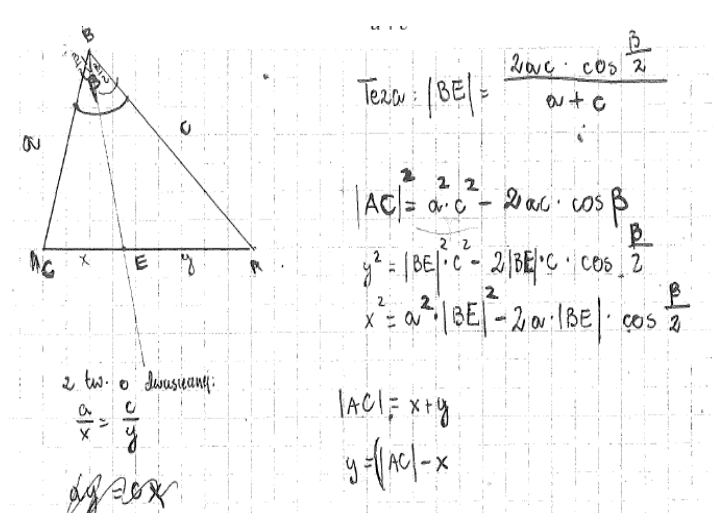 B
β/2 β/2
β
a
c
C x E y A
z tw. o dwusiecznej:
a/x = c/y
ay = cx
Teza: |BE| = (2ac · cos β/2)/(a + c)
|AC|² = a² · c² - 2ac · cos β
y² = |BE|² · c² - 2|BE| · c · cos β/2
x² = a² · |BE|² - 2a · |BE| · cos β/2
|AC| = x + y
y = |AC| - x